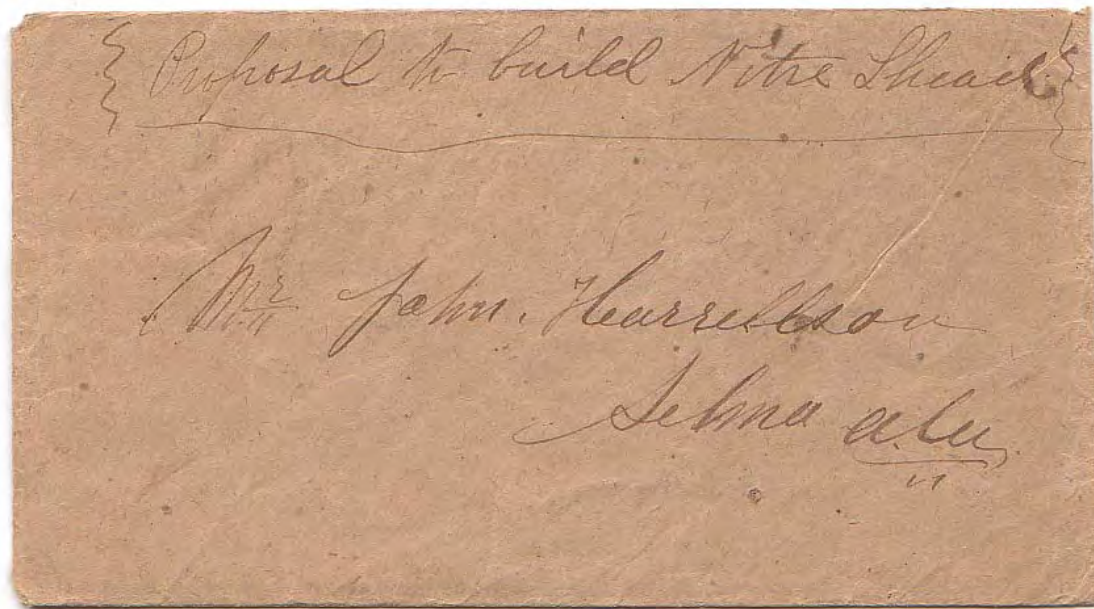 Proposal to build Nitre Shead
Mr John. Harrellson
Selma ala